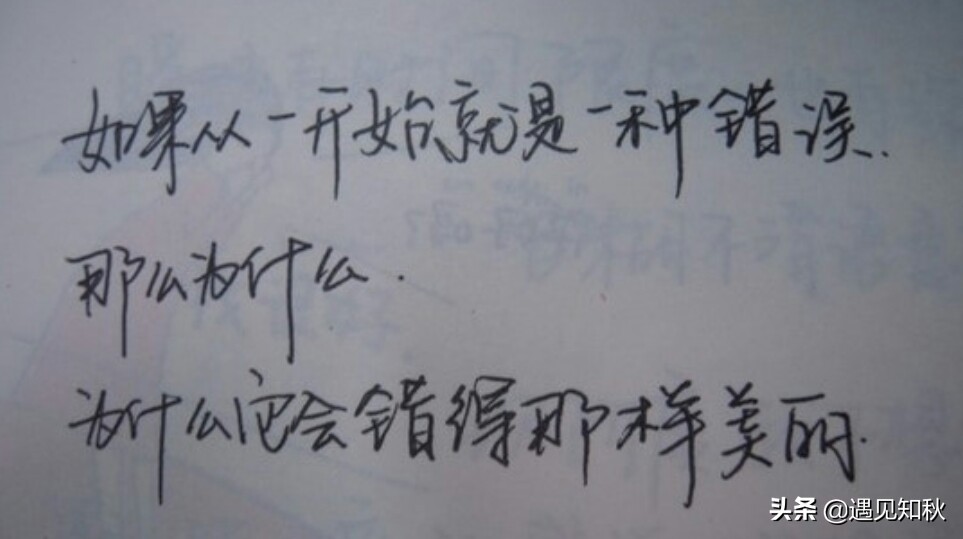 如果从一开始就是一种错误.
那么为什么.
为什么它会错得那样美丽.
头条 @遇见知秋